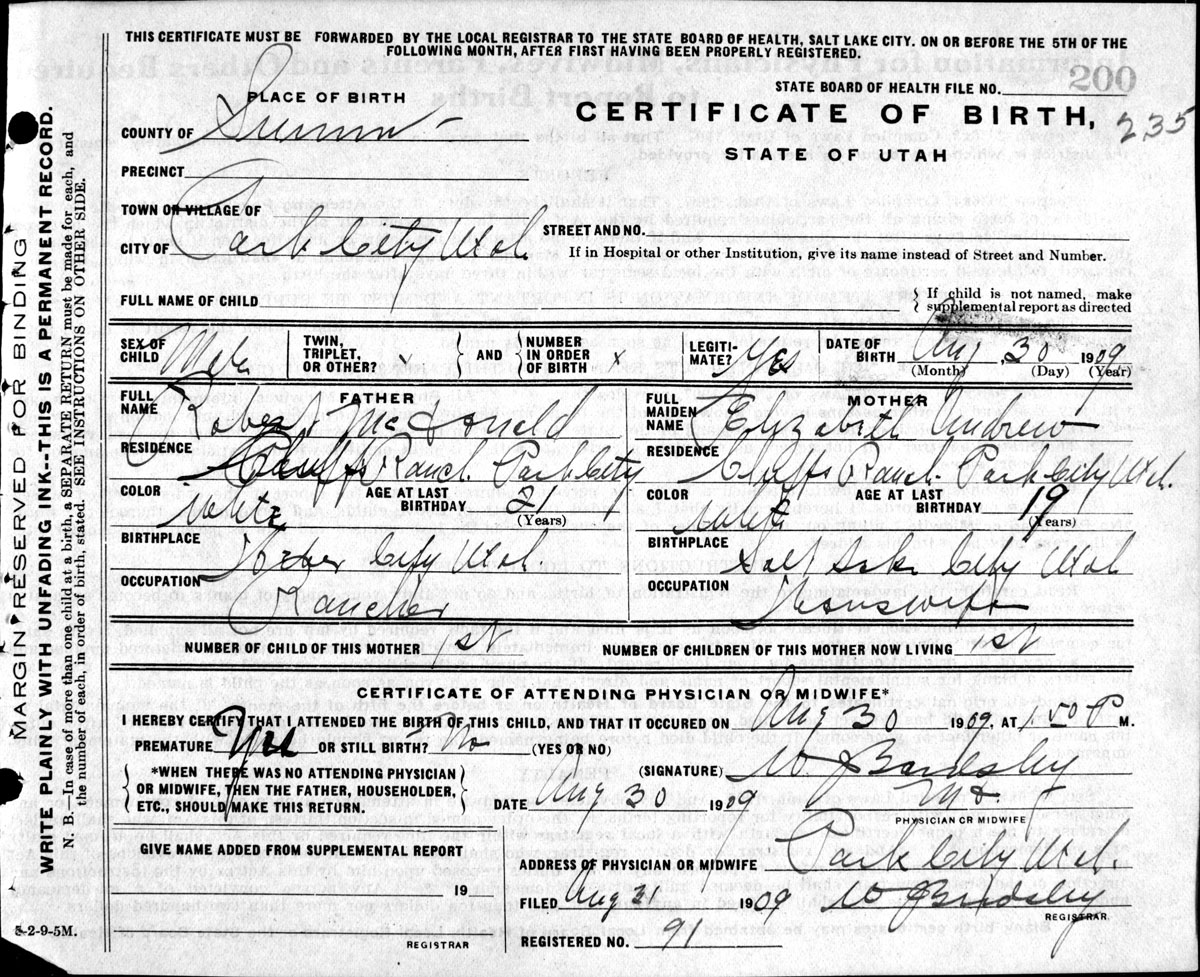 THIS CERTIFICATE MUST BE FORWARDED BY THE LOCAL REGISTRAR TO THE STATE BOARD OF HEALTH, SALT LAKE CITY. ON OR BEFORE THE 5TH OF THE
FOLLOWING MONTH, AFTER FIRST HAVING BEEN PROPERLY REGISTERED.
STATE BOARD OF HEALTH FILE NO. 200
PLACE OF BIRTH
CERTIFICATE OF BIRTH, 235
STATE OF UTAH
COUNTY OF Summit
PRECINCT
TOWN OR VILLAGE OF
CITY OF Park City Utah
STREET AND NO.
If in Hospital or other Institution, give its name instead of Street and Number.
FULL NAME OF CHILD
If child is not named, make
supplemental report as directed
SEX OF CHILD Male
TWIN, TRIPLET, OR OTHER? x
AND
NUMBER IN ORDER OF BIRTH x
LEGITIMATE? Yes
DATE OF BIRTH Aug 30 1909
(Month) (Day) (Year)
FATHER
FULL NAME Robert McDonald
RESIDENCE Ranch Park City
COLOR White
AGE AT LAST BIRTHDAY 21
(Years)
BIRTHPLACE City Utah
OCCUPATION Rancher
MOTHER
FULL MAIDEN NAME Elizabeth Andrew
RESIDENCE Ranch Park City Utah.
COLOR White
AGE AT LAST BIRTHDAY 19
(Years)
BIRTHPLACE Salt Lake City Utah
OCCUPATION Housewife
NUMBER OF CHILD OF THIS MOTHER 1st
NUMBER OF CHILDREN OF THIS MOTHER NOW LIVING 1st
CERTIFICATE OF ATTENDING PHYSICIAN OR MIDWIFE*
I HEREBY CERTIFY THAT I ATTENDED THE BIRTH OF THIS CHILD, AND THAT IT OCCURED ON Aug 30 1909. AT P M.
PREMATURE OR STILL BIRTH? No (YES OR NO)
*WHEN THERE WAS NO ATTENDING PHYSICIAN
OR MIDWIFE, THEN THE FATHER, HOUSEHOLDER,
ETC., SHOULD MAKE THIS RETURN.
(SIGNATURE) W J Bardsley
DATE Aug 30 1909
MD
PHYSICIAN OR MIDWIFE
GIVE NAME ADDED FROM SUPPLEMENTAL REPORT
19
REGISTRAR
ADDRESS OF PHYSICIAN OR MIDWIFE Park City Utah
FILED Aug 31 1909 W J Bardsley
REGISTRAR.
REGISTERED NO. 91
5-2-9-5M.
MARGIN RESERVED FOR BINDING
WRITE PLAINLY WITH UNFADING INK--THIS IS A PERMANENT RECORD.
N. B.—In case of more than one child at a birth, a SEPARATE RETURN must be made for each, and
the number of each, in order of birth, stated. SEE INSTRUCTIONS ON OTHER SIDE.